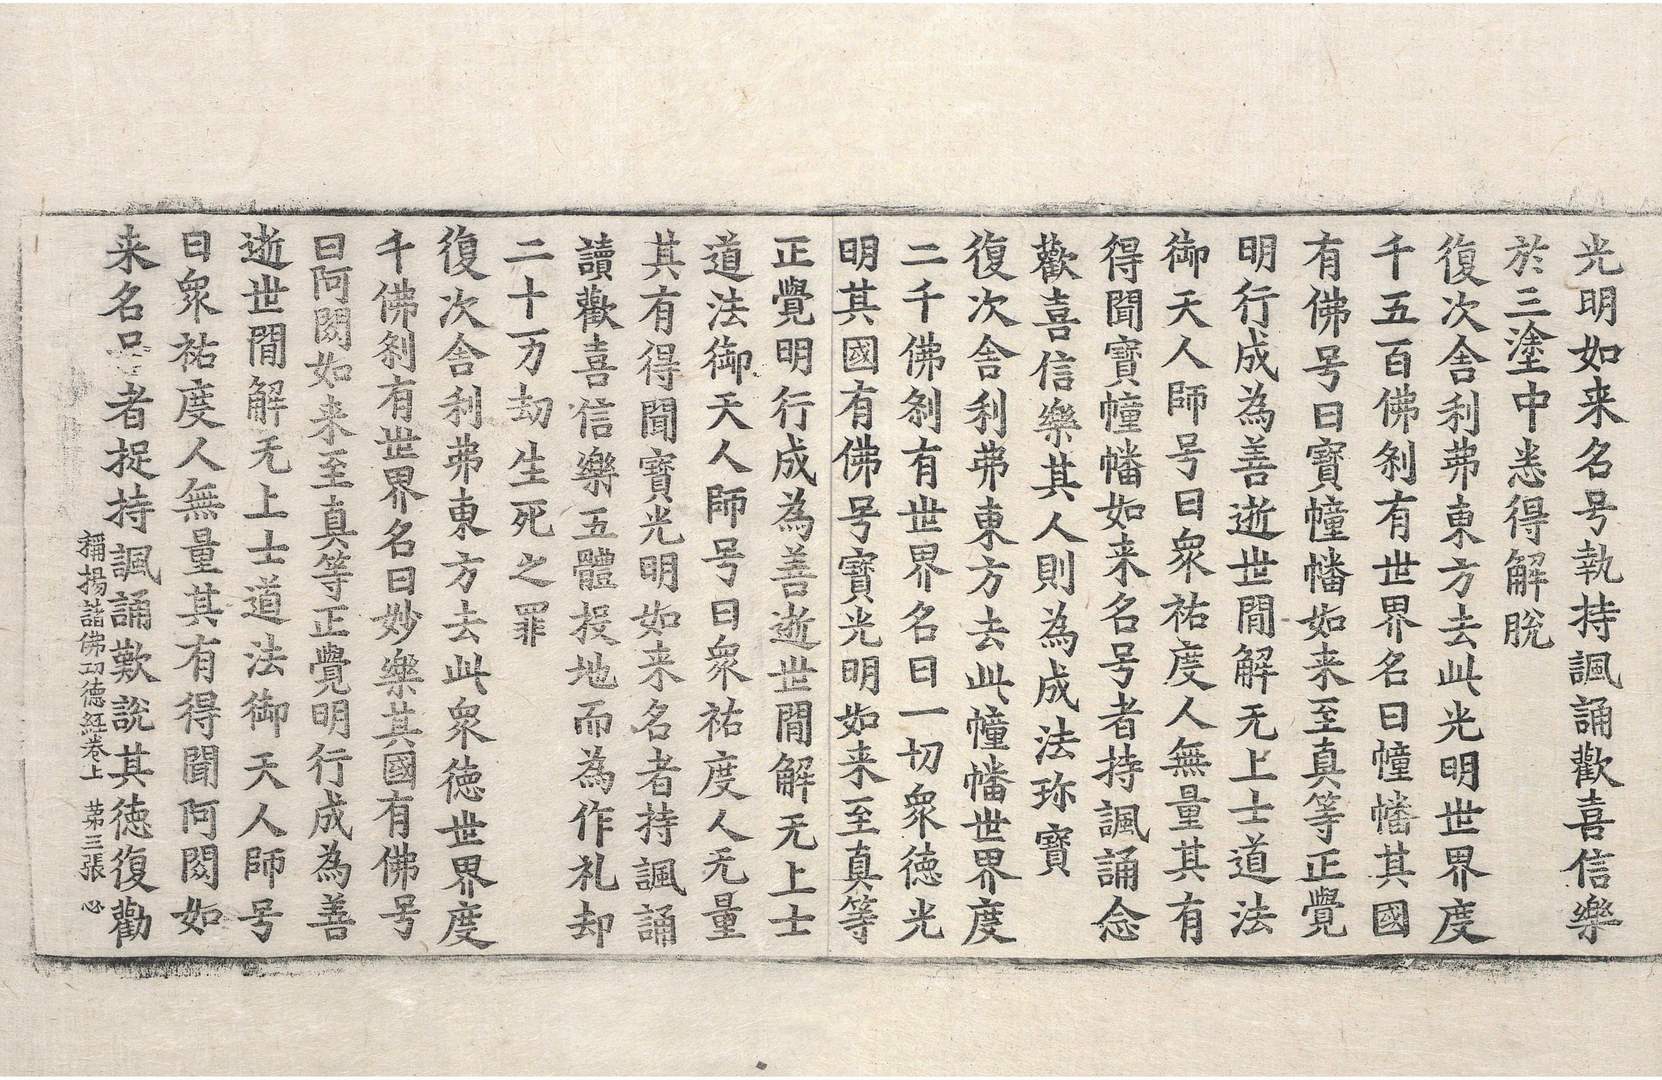 光明如来名号執持諷誦歡喜信樂
於三塗中悉得解脫
復次舍利弗東方去此光明世界度
千五百佛刹有世界名曰幢幡其國
有佛号曰寶幢幡如来至真等正覺
明行成為善逝世閒解无上士道法
御天人師号曰衆祐度人無量其有
得聞寶幢幡如来名号者持諷誦念
歡喜信樂其人則為成法珎寶
復次舍利弗東方去此幢幡世界度
二千佛刹有世界名曰一切衆德光
明其國有佛号寶光明如来至真等
正覺明行成為善逝世閒解无上士
道法御天人師号曰衆祐度人无量
其有得聞寶光明如来名者持諷誦
讀歡喜信樂五體投地而為作礼却
二十万劫生死之罪
復次舍利弗東方去此衆德世界度
千佛刹有世界名曰妙樂其國有佛号
曰阿閦如来至真等正覺明行成為善
逝世閒解无上士道法御天人師号
曰衆祐度人無量其有得聞阿閦如
来名号者捉持諷誦歎說其德復勸
稱揚諸佛功德經卷上 苐三張 必